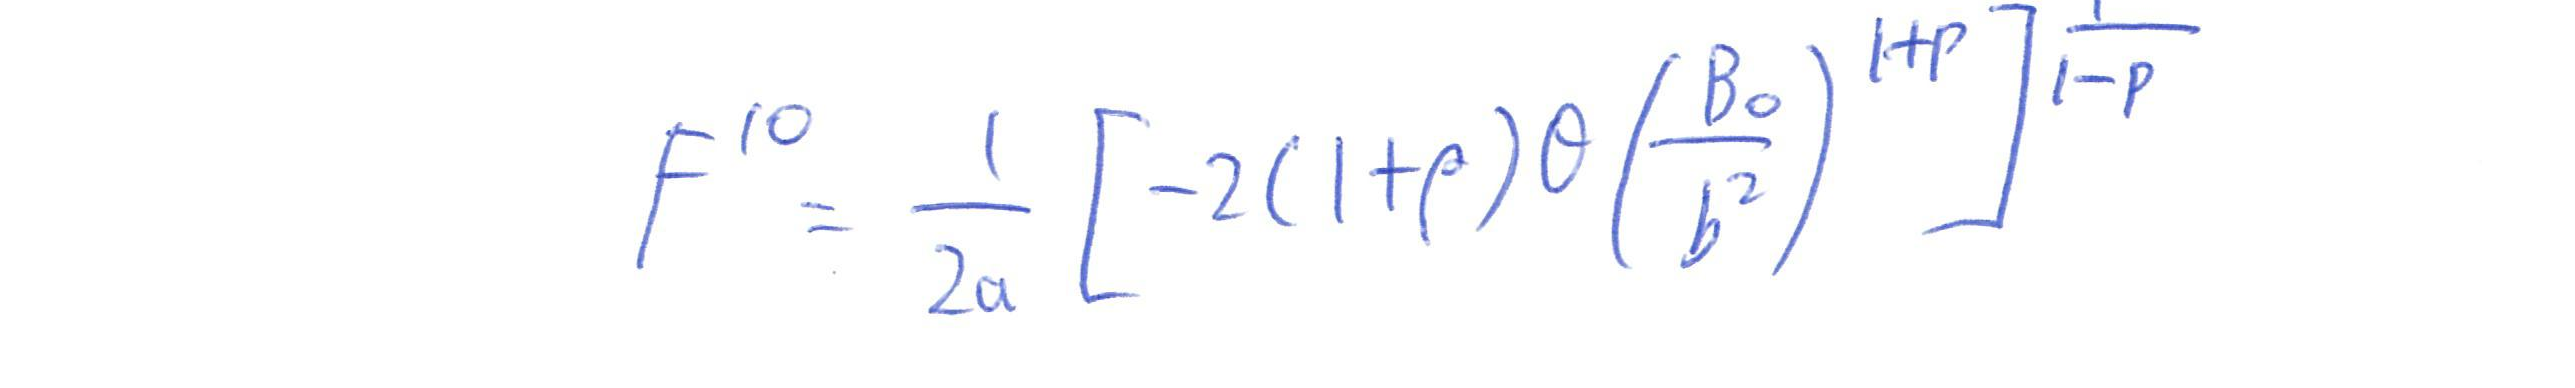 F^{10} = \frac{1}{2a} \left[ -2(1+p)\theta \left( \frac{B_0}{b^2} \right)^{1+p} \right]^{\frac{1}{1-p}}